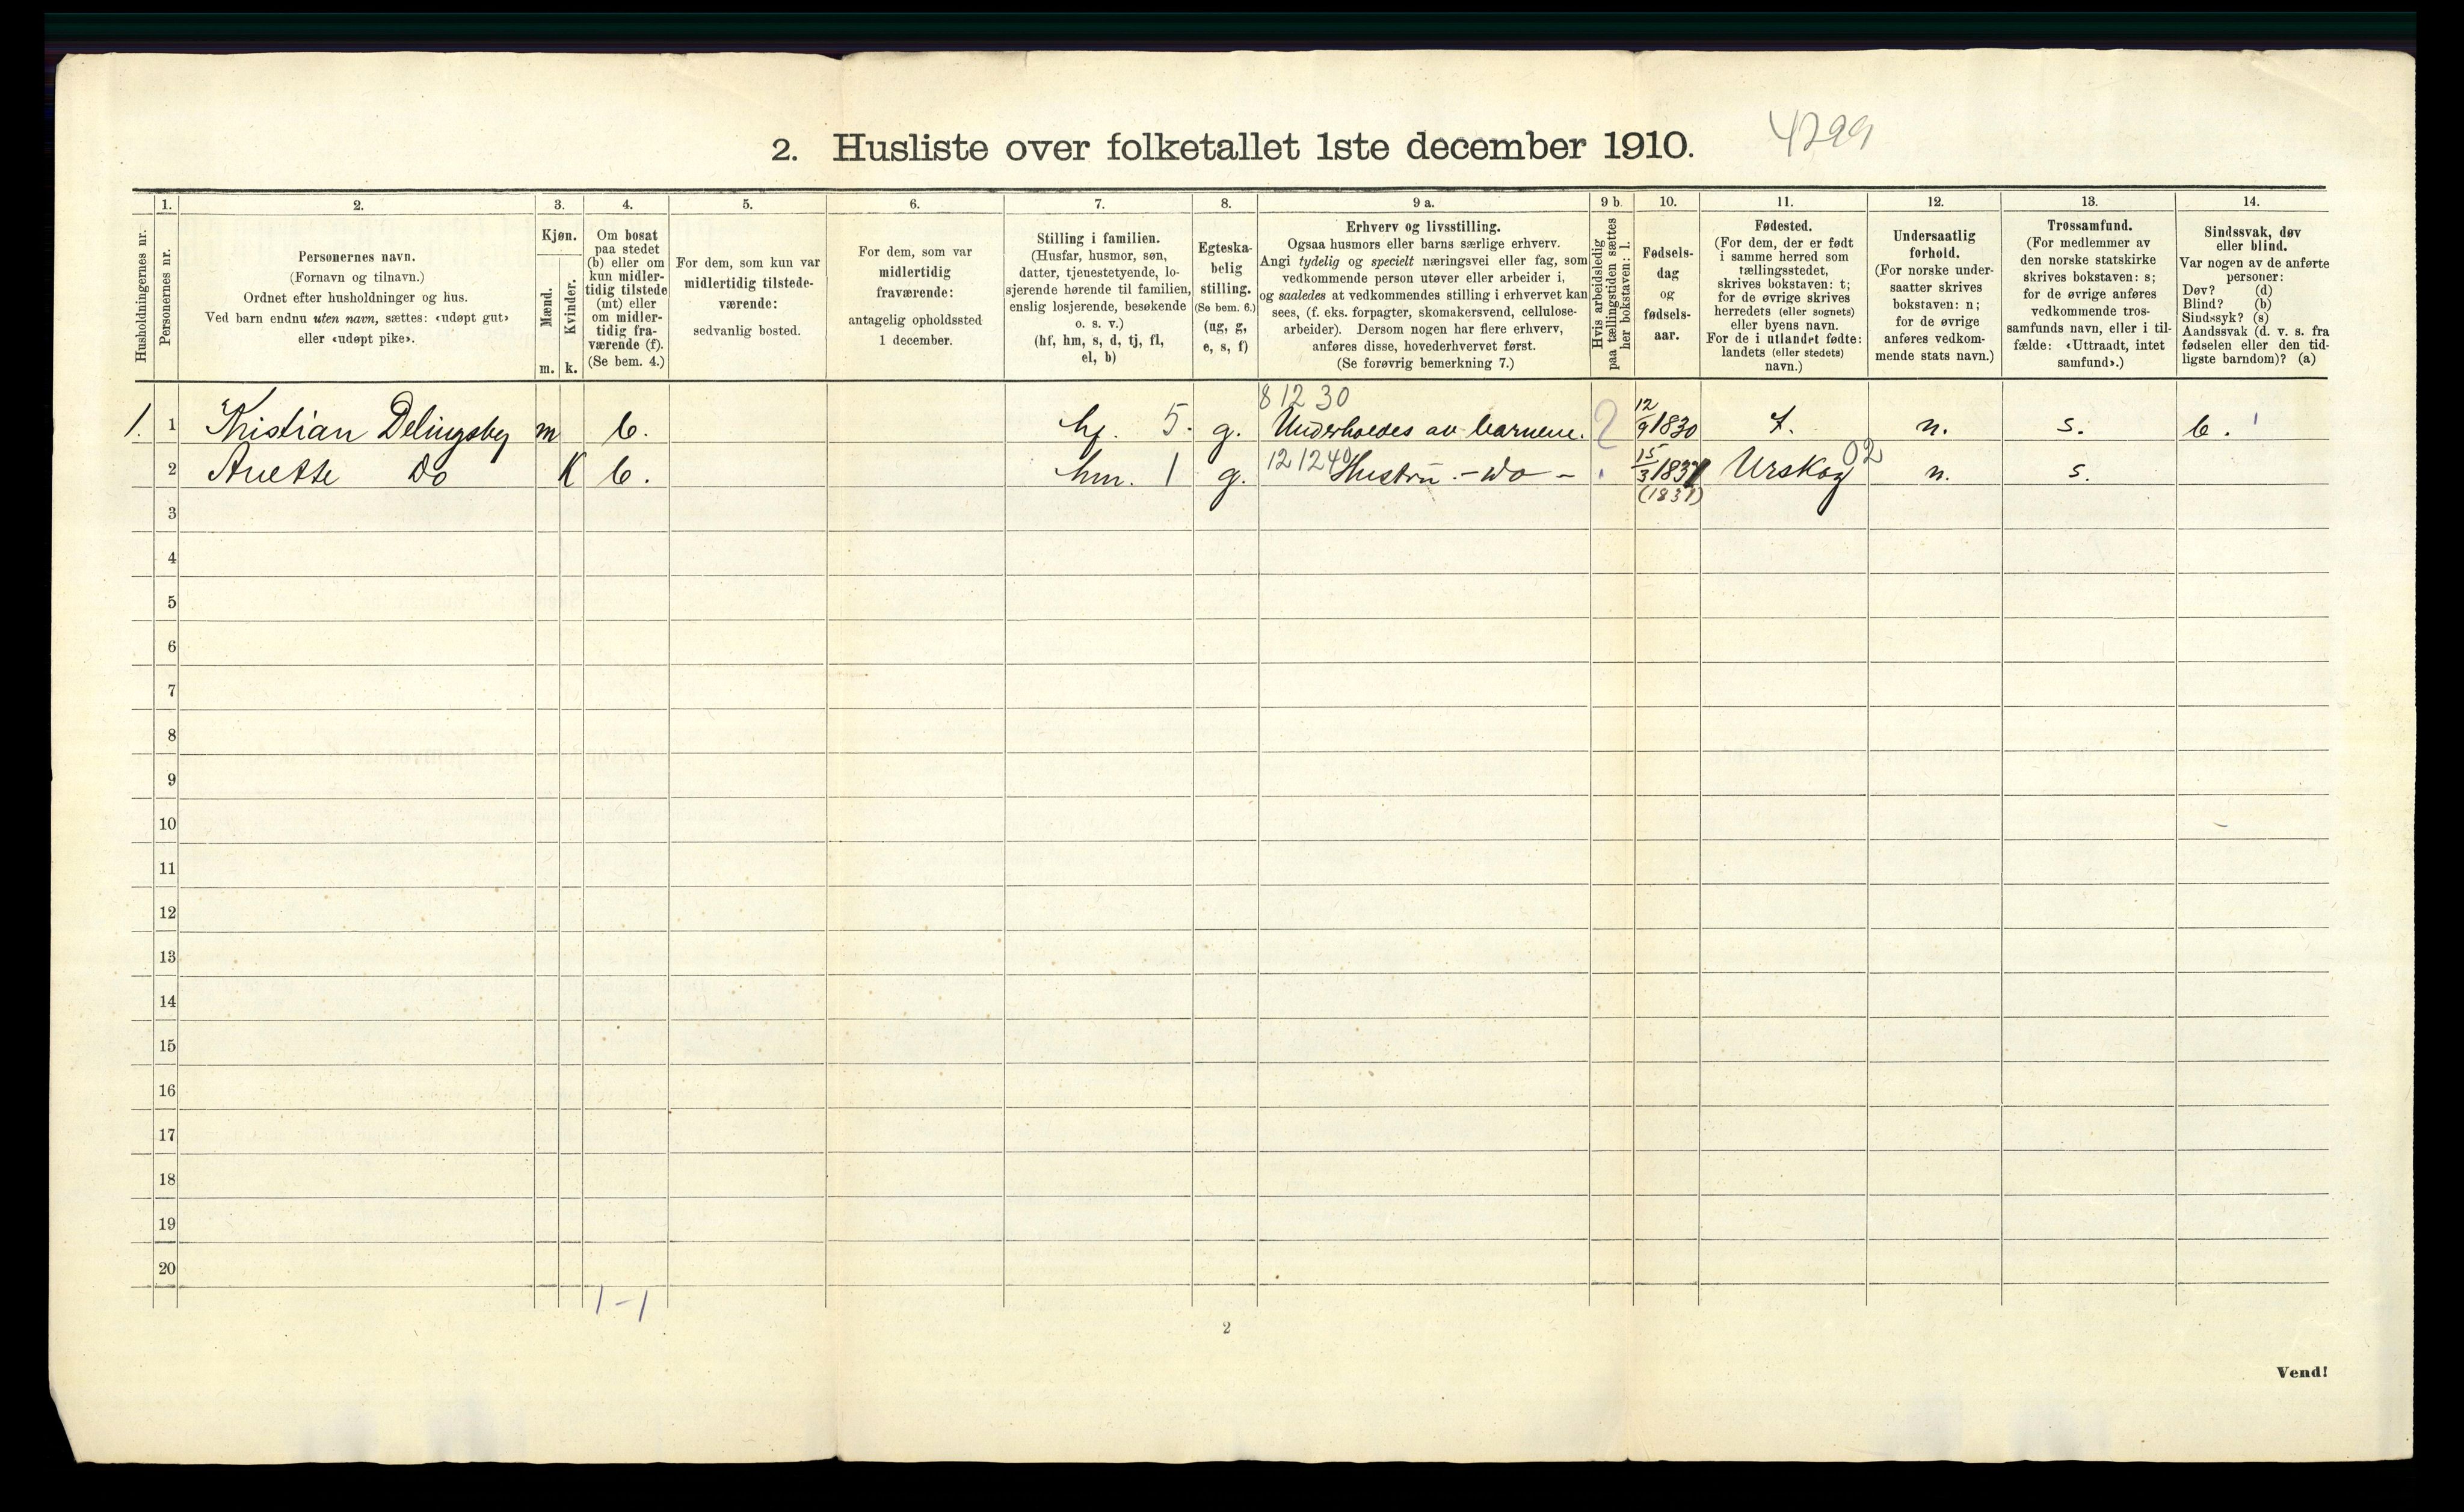 2. Husliste over folketallet 1ste december 1910. 4299
Husholdningernes nr.
1.
Personernes nr.
2.
Personernes navn.
(Fornavn og tilnavn.)
Ordnet efter husholdninger og hus.
Ved barn endnu uten navn, sættes: «udøpt gut»
eller «udøpt pike».
3.
Kjøn.
Mænd.
Kvinder.
m. k.
4.
Om bosat
paa stedet
(b) eller om
kun midler-
tidig tilstede
(mt) eller
om midler-
tidig fra-
værende (f).
(Se bem. 4.)
5.
For dem, som kun var
midlertidig tilstede-
værende:
sedvanlig bosted.
6.
For dem, som var
midlertidig
fraværende:
antagelig opholdssted
1 december.
7.
Stilling i familien.
(Husfar, husmor, søn,
datter, tjenestetyende, lo-
sjerende hørende til familien,
enslig losjerende, besøkende
o. s. v.)
(hf, hm, s, d, tj, fl,
el, b)
8.
Egteska-
belig
stilling.
(Se bem. 6.)
(ug, g,
e, s, f)
9 a.
Erhverv og livsstilling.
Ogsaa husmors eller barns særlige erhverv.
Angi tydelig og specielt næringsvei eller fag, som
vedkommende person utøver eller arbeider i,
og saaledes at vedkommendes stilling i erhvervet kan
sees, (f. eks. forpagter, skomakersvend, cellulose-
arbeider). Dersom nogen har flere erhverv,
anføres disse, hovederhvervet først.
(Se forøvrig bemerkning 7.)
9 b.
Hvis arbeidsledig
paa tællingstiden sættes
her bokstaven: l.
10.
Fødsels-
dag
og
fødsels-
aar.
11.
Fødested.
(For dem, der er født
i samme herred som
tællingsstedet,
skrives bokstaven: t;
for de øvrige skrives
herredets (eller sognets)
eller byens navn.
For de i utlandet fødte:
landets (eller stedets)
navn.)
12.
Undersaatlig
forhold.
(For norske under-
saatter skrives
bokstaven: n;
for de øvrige
anføres vedkom-
mende stats navn.)
13.
Trossamfund.
(For medlemmer av
den norske statskirke
skrives bokstaven: s;
for de øvrige anføres
vedkommende tros-
samfunds navn, eller i til-
fælde: «Uttraadt, intet
samfund».)
14.
Sindssvak, døv
eller blind.
Var nogen av de anførte
personer:
Døv? (d)
Blind? (b)
Sindssyk? (s)
Aandssvak (d. v. s. fra
fødselen eller den tid-
ligste barndom)? (a)
8 12 30
1. 1 Kristian Delingsby m b. hf. 5. g. Underholdes av barnene. 2 12/9 1830 t. n. s. b. 1
2 Anette Do K b. hm. 1 g. 12 1240 Hustru - Do - 15/3 1831 Urskog 02 n. s.
(1831)
3
4
5
6
7
8
9
10
11
12
13
14
15
16
17
18
19
20
1-1
2
Vend!